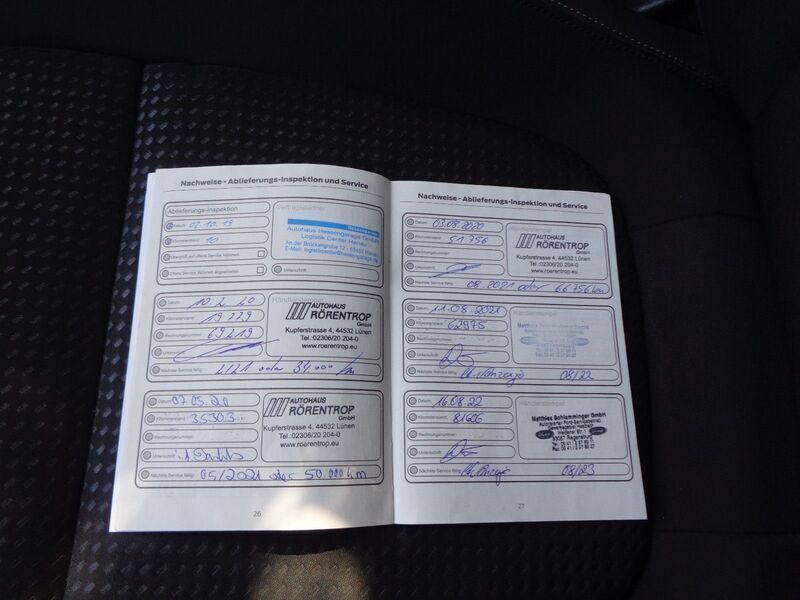 Nachweise - Ablieferungs-Inspektion und Service
Ablieferungs-Inspektion
Vertragspartner
Datum 02.10.19
Kilometerstand 10
Autohaus Hessengarage GmbH
Logistik Center Hanau
Unterschrift
Datum 10.2.20
Kilometerstand 19229
Rechnungsnummer 69219
Unterschrift
Händlerstempel
AUTOHAUS
RÖRENTROP
GmbH
Kupferstrasse 4, 44532 Lünen
Tel.:02306/20 204-0
www.roerentrop.eu
Nächste Service fällig 2/21 oder 34.000 km
Datum 07.05.20
Kilometerstand 35303
Rechnungsnummer
Unterschrift
AUTOHAUS
RÖRENTROP
GmbH
Kupferstrasse 4, 44532 Lünen
Tel.:02306/20 204-0
www.roerentrop.eu
Nächste Service fällig 05/2021 oder 50.000 km
26
Nachweise - Ablieferungs-Inspektion und Service
Datum 03.08.2020
Kilometerstand 51756
Rechnungsnummer
Unterschrift
AUTOHAUS
RÖRENTROP
GmbH
Kupferstrasse 4, 44532 Lünen
Tel.:02306/20 204-0
www.roerentrop.eu
Nächste Service fällig 08.2021 oder 66756 km
Datum 11.08.2021
Kilometerstand 62975
Rechnungsnummer
Unterschrift
Nächste Service fällig 08/22
Datum 16.08.22
Kilometerstand 81606
Rechnungsnummer
Unterschrift
Matthias Schlamminger GmbH
Autorisierter Ford-Servicebetrieb
Nächste Service fällig 08/23
27